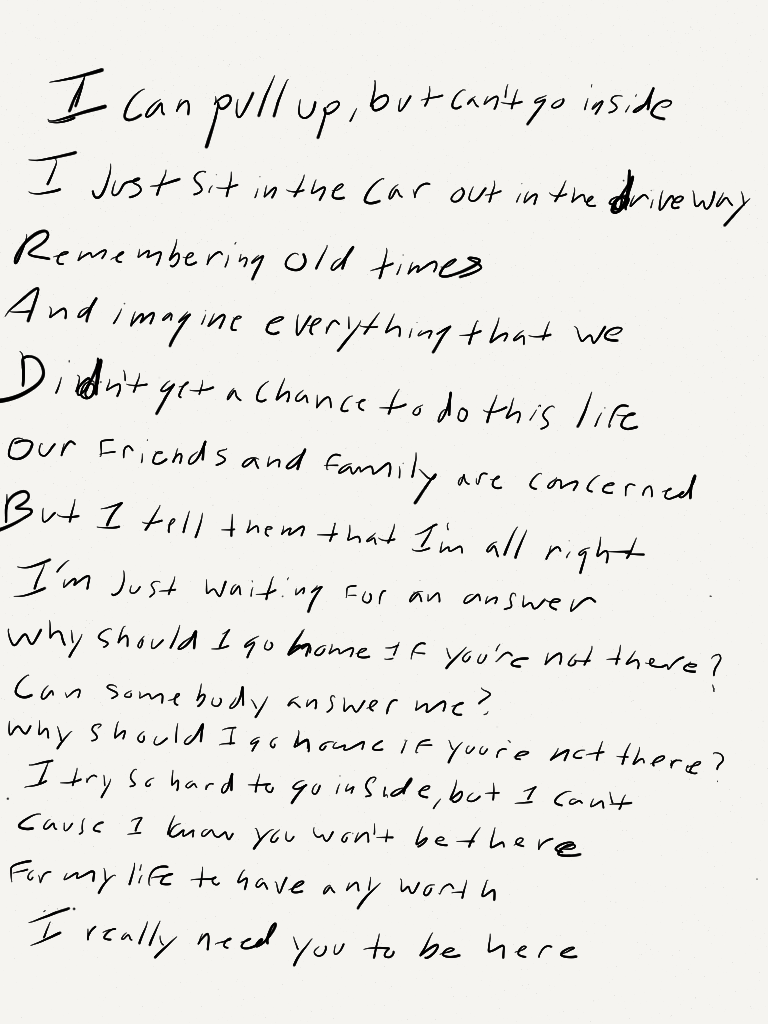 I can pull up, but can't go inside
I Just sit in the car out in the driveway
Remembering old times
And imagine everything that we
Didn't get a chance to do this life
Our Friends and family are concerned
But I tell them that I'm all right
I'm Just waiting for an answer
Why should I go home If you're not there?
Can somebody answer me?
Why should I go home if you're not there?
I try so hard to go inside, but I can't
Cause I know you won't be there
For my life to have any worth
I really need you to be here